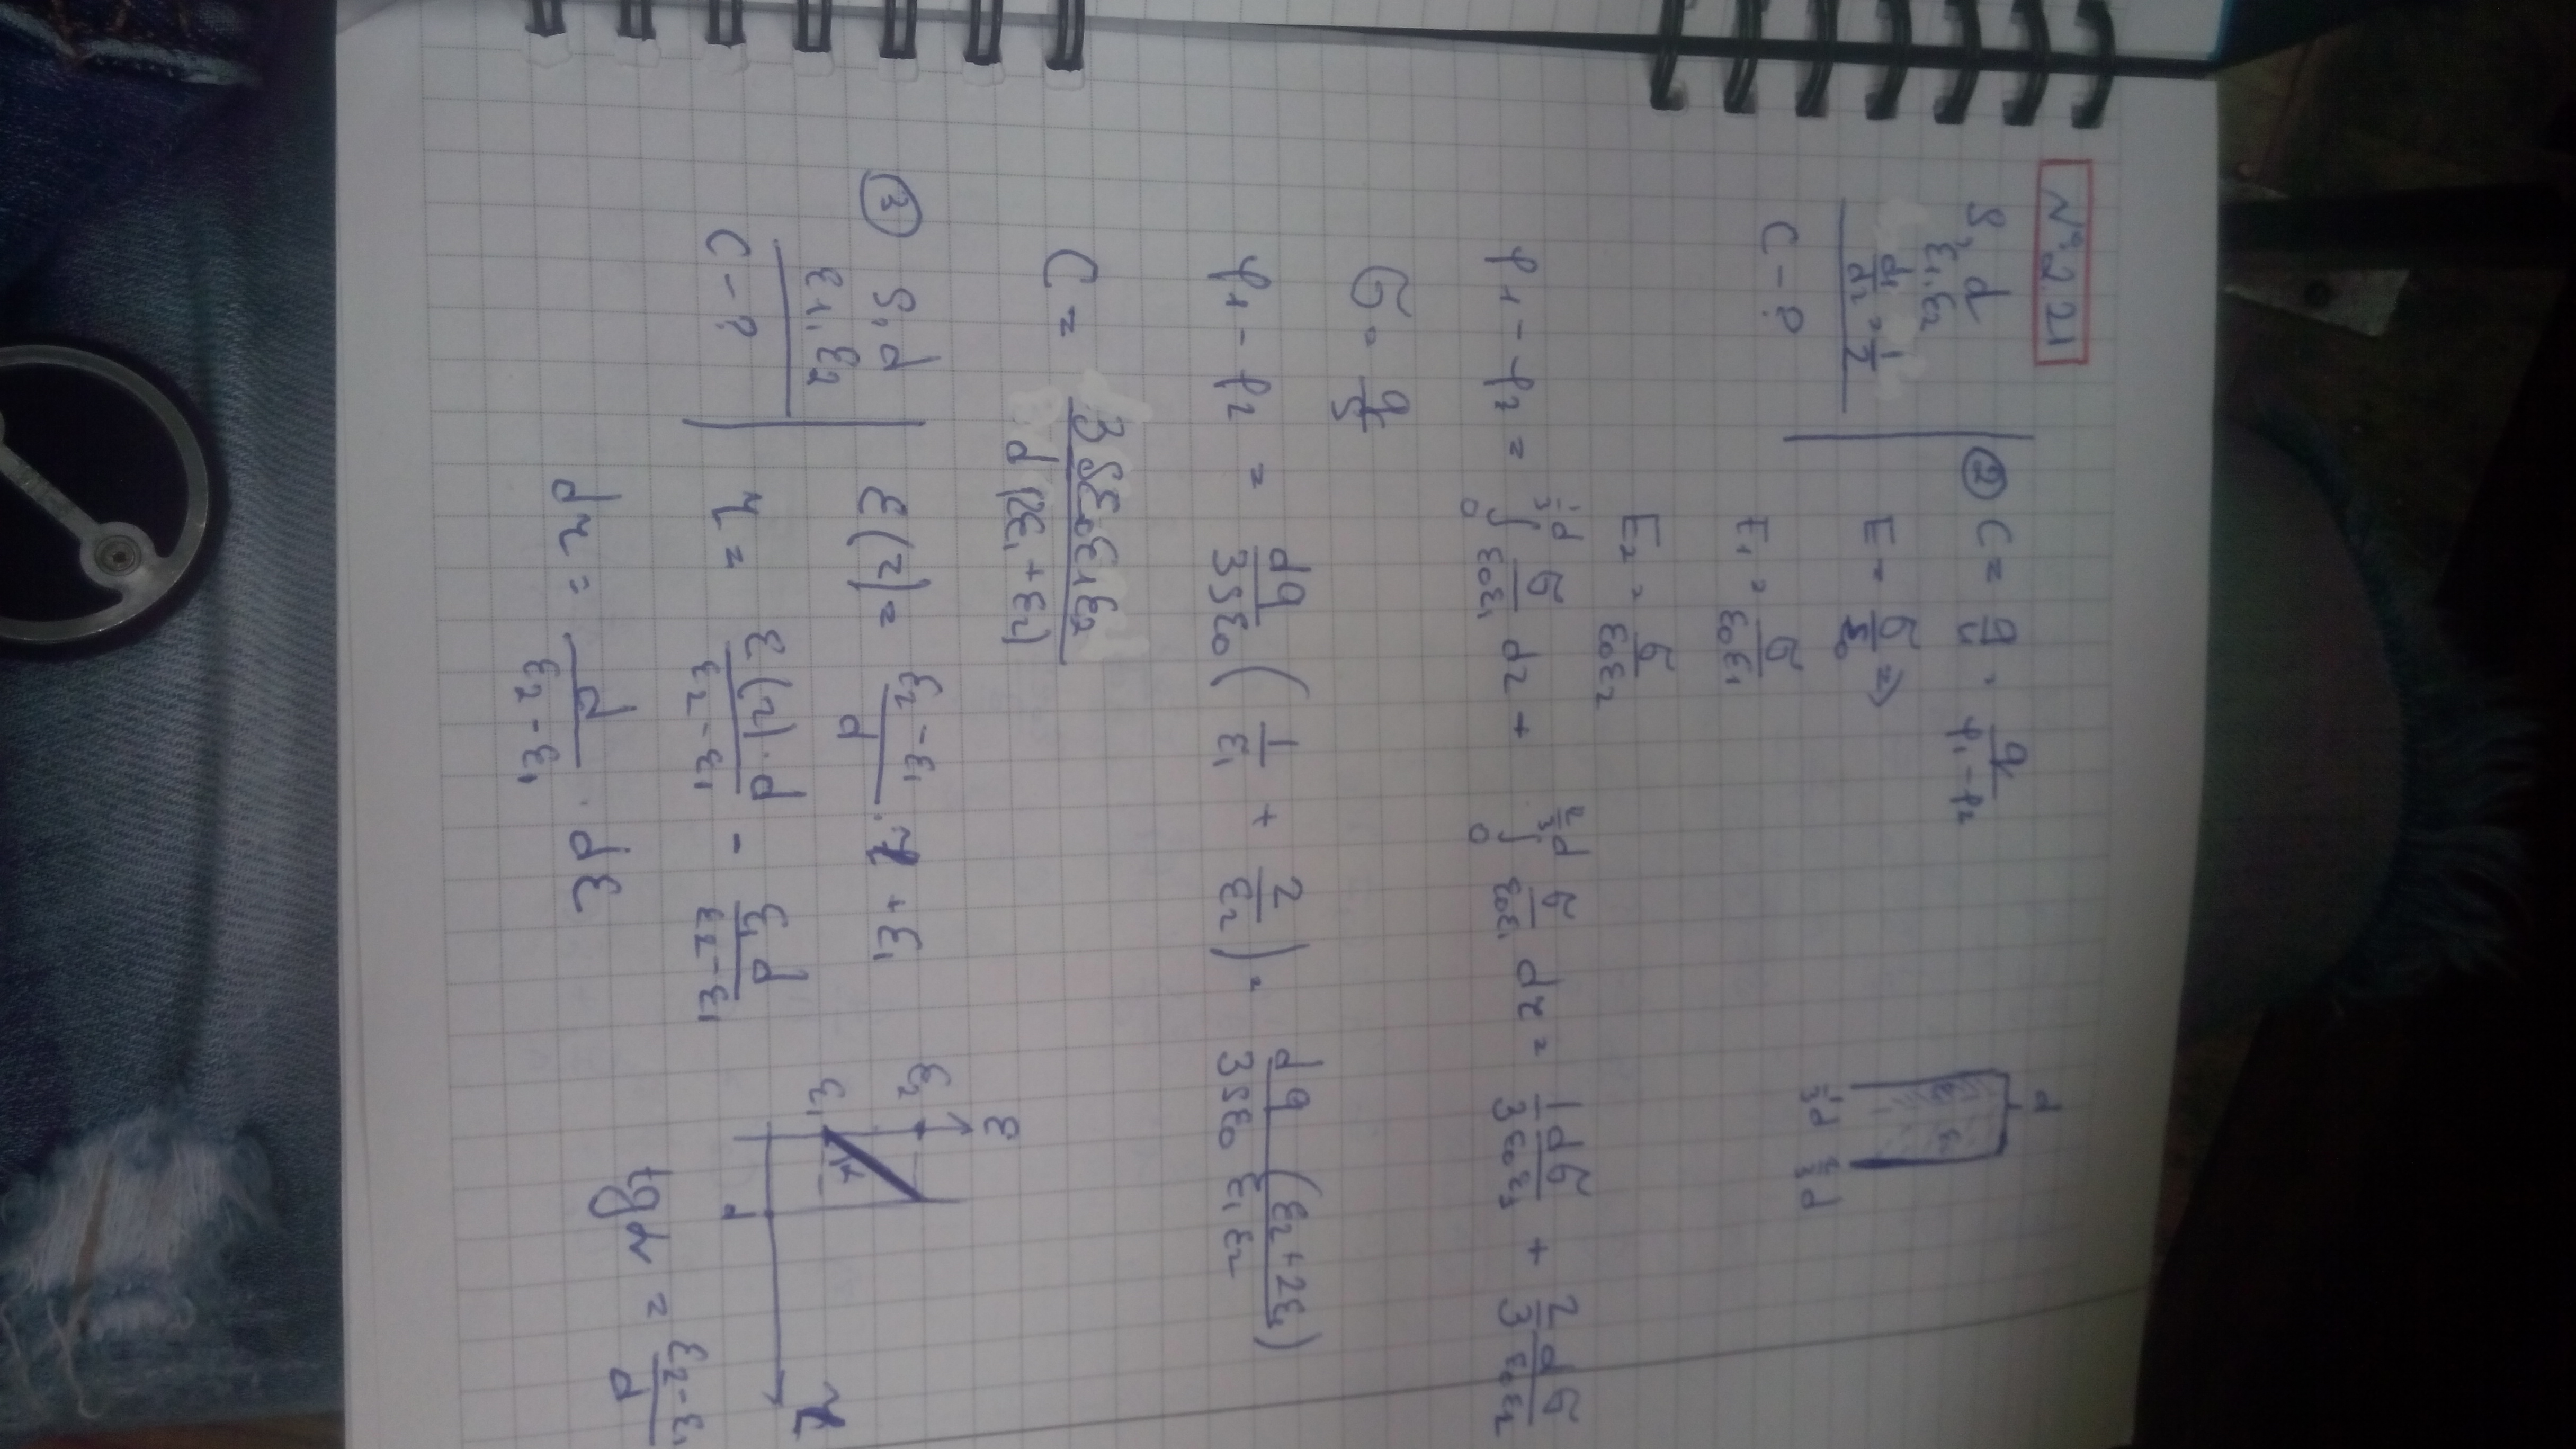 № 2.21
S, d
ε₁, ε₂
d₁/d₂ = 1/2
C - ?
② C = q/U = q/(φ₁ - φ₂)
E = σ/ε₀ ⇒
E₁ = σ/(ε₀ε₁)
E₂ = σ/(ε₀ε₂)
d
1/3 d 2/3 d
φ₁ - φ₂ = ∫₀^(1/3 d) σ/(ε₀ε₁) dr + ∫₀^(2/3 d) σ/(ε₀ε₁) dr = 1/3 dσ/(ε₀ε₁) + 2/3 dσ/(ε₀ε₂)
σ = q/S
φ₁ - φ₂ = dq/(3Sε₀) (1/ε₁ + 2/ε₂) = dq (ε₂ + 2ε₁)/(3Sε₀ ε₁ε₂)
C = 3Sε₀ε₁ε₂/(d(2ε₁ + ε₂))
③ S, d
ε₁, ε₂
C - ?
ε(r) = (ε₂ - ε₁)/d · r + ε₁
r = ε(r)·d/(ε₂ - ε₁) - ε₁d/(ε₂ - ε₁)
dr = d/(ε₂ - ε₁) · dε
ε
ε₂
ε₁
α
d
r
tgα = (ε₂ - ε₁)/d